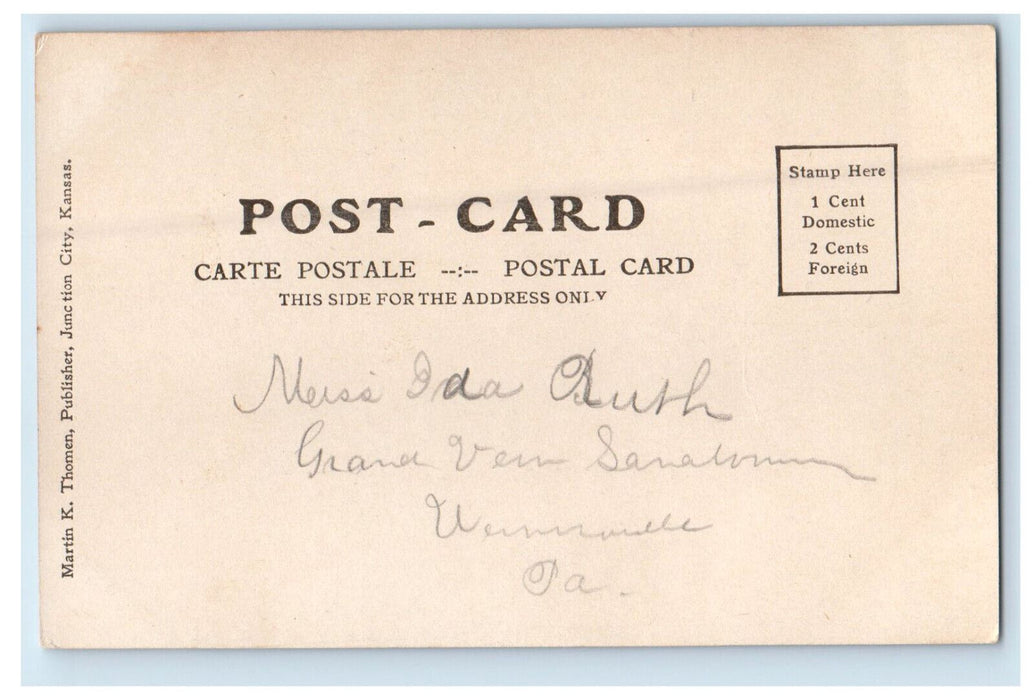 POST - CARD
CARTE POSTALE --:-- POSTAL CARD
THIS SIDE FOR THE ADDRESS ONLY
Stamp Here
1 Cent
Domestic
2 Cents
Foreign
Martin K. Thomen, Publisher, Junction City, Kansas.
Miss Ida Ruth
Grand View Sanatorium
Wernersville
Pa.